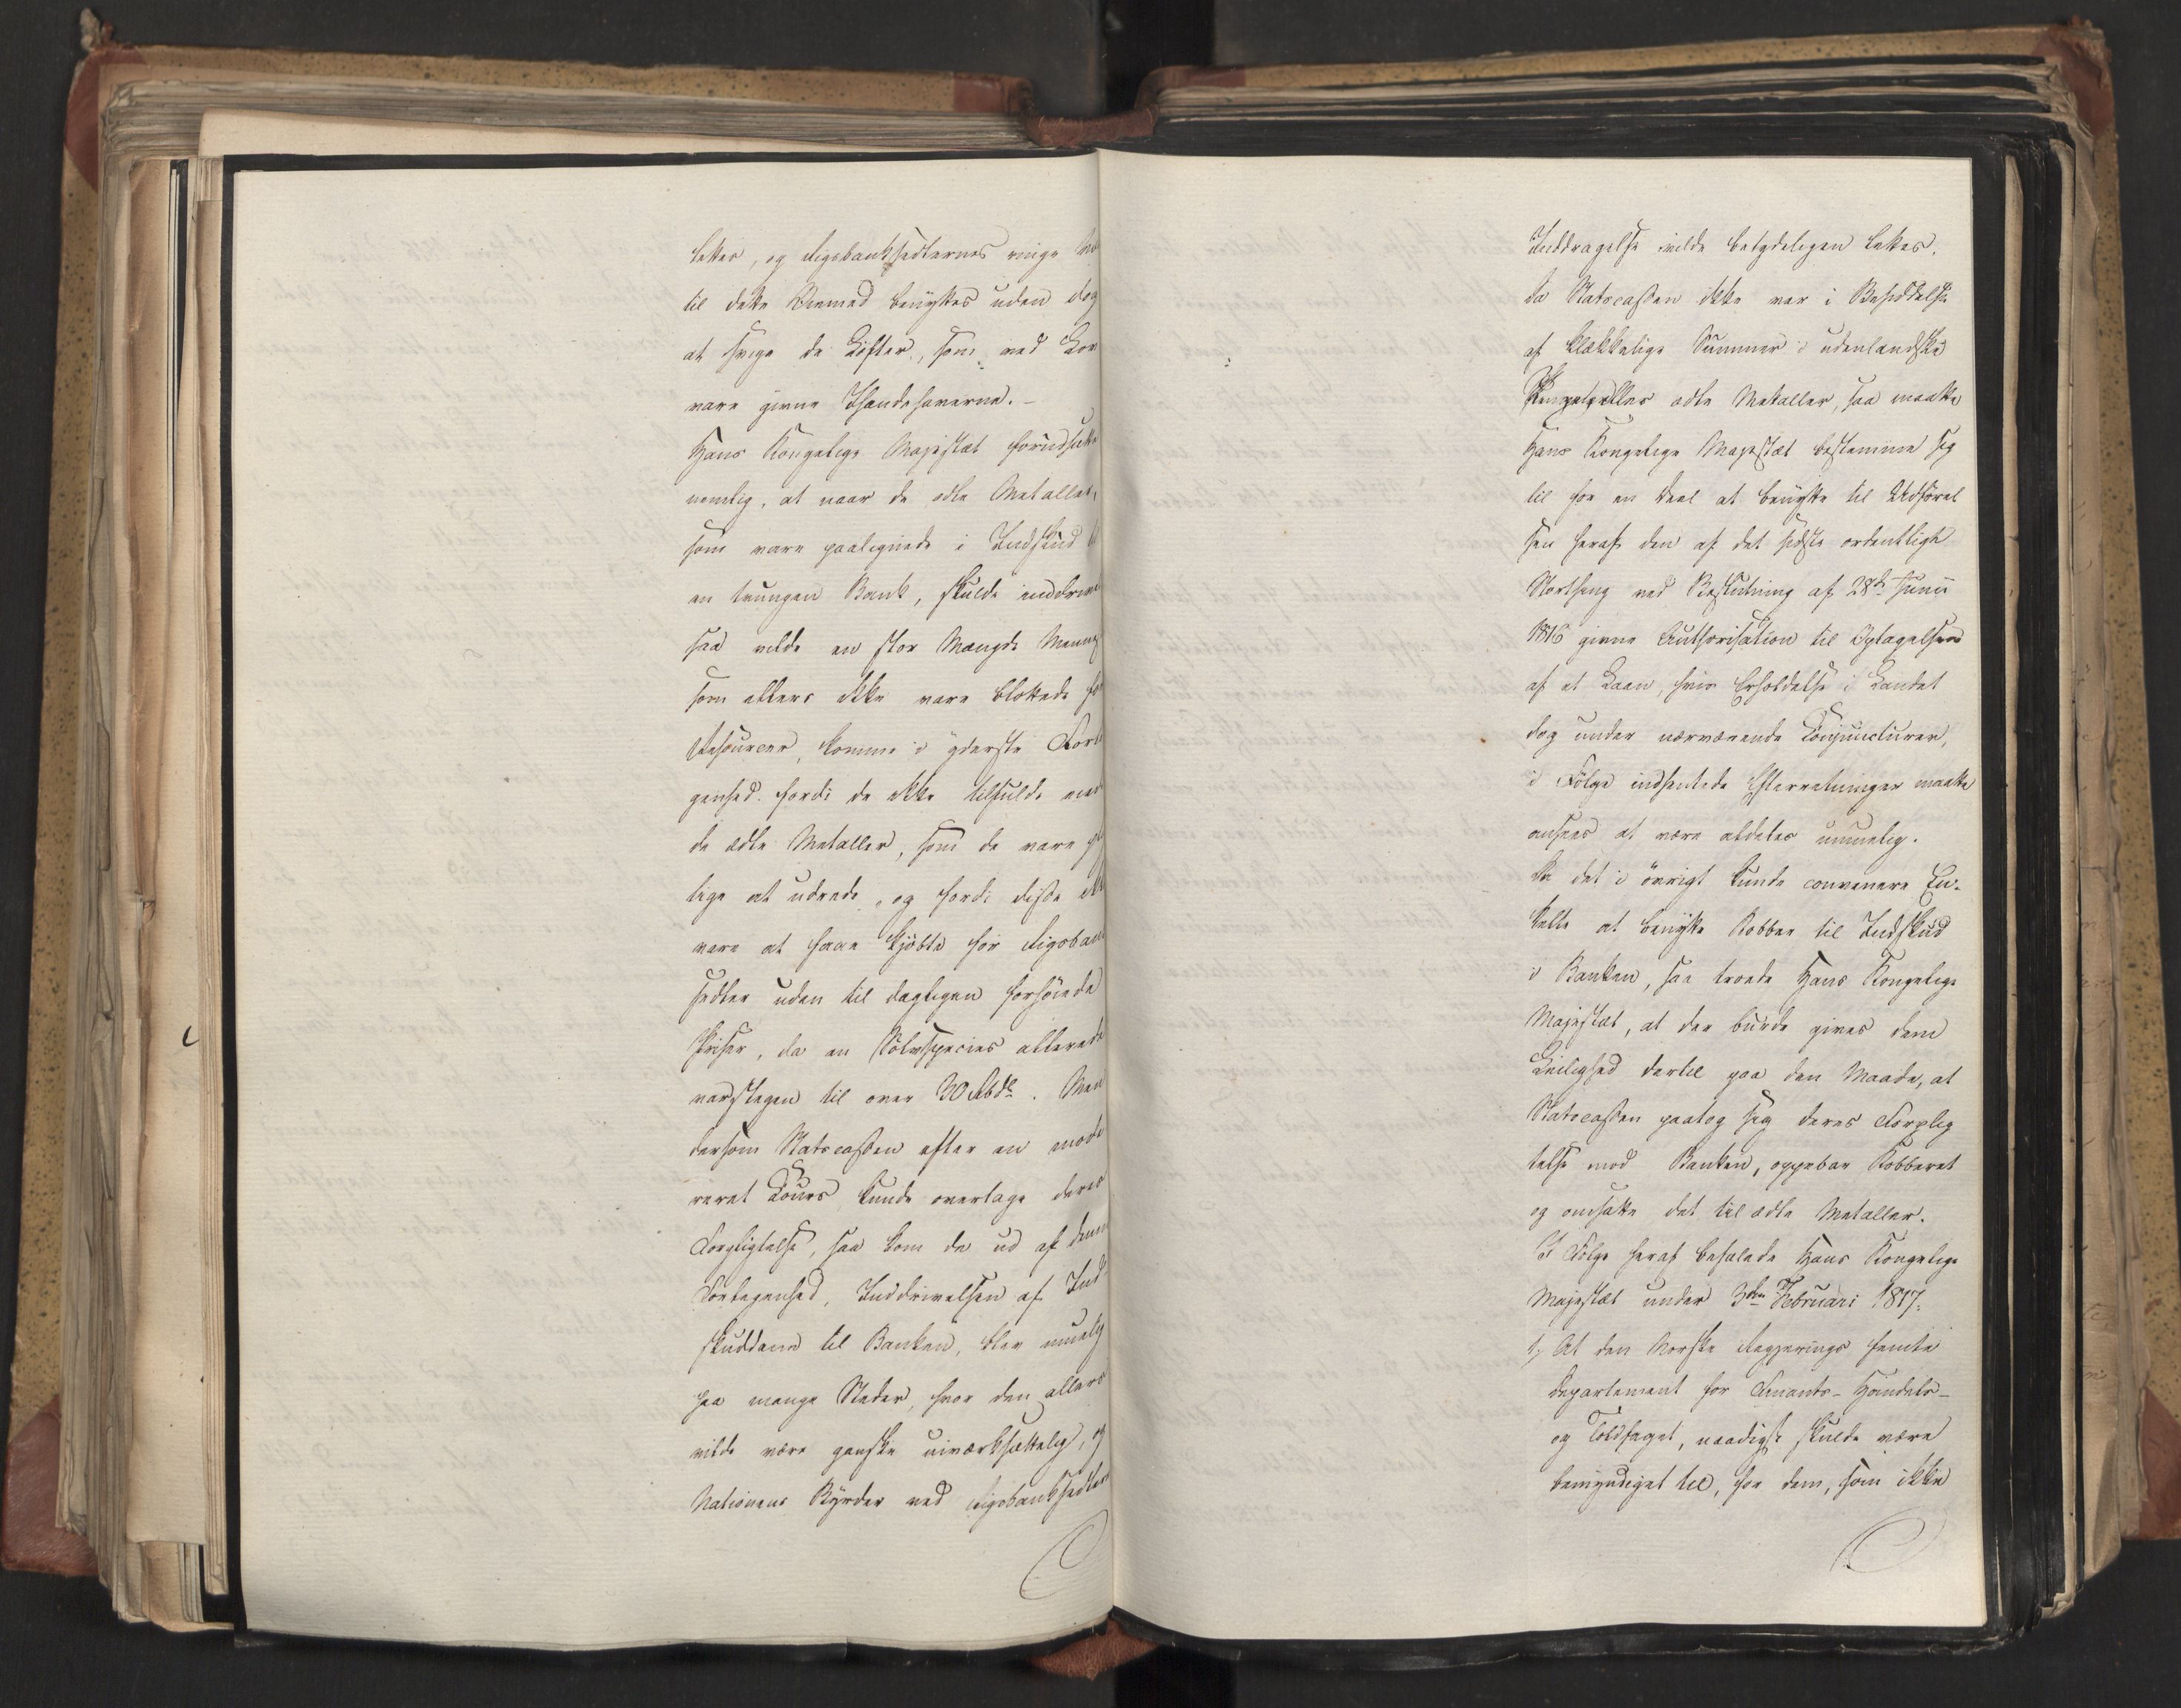 lettes, og Rigsbanksedlernes ringe
til dette Øiemed benyttes uden dog
at svige de Löfter, som ved Lov
vare givne Ihændehaverne. –
Hans Kongelige Majestæt forudsatte
nemlig, at naar de ædle Metaller,
som vare paalignede i Indskud
en tvungen Bank, skulde inddrives
saa vilde en stor Mængde Menn
som ellers ikke vare blottede for
Resourcer, komme i yderste Forle
genhed. fordi de ikke tilfulde
de ædle Metaller, som de vare
tige at udrede, og fordi disse
vare at faae kjöbte for Rigsban
sedler uden til dagligen forhöiede
Priser, da en Sölvspecies allerede
var stegen til over 30 Rbdr. Men
dersom Statscassen efter en mode
reret Cours kunde overtage deres
Forpligtelse, saa kom de ud af denne
Forlegenhed, Inddrivelsen af Ind
skuddene til Banken, blev muelig
paa mange Steder, hvor den ellers
vilde være ganske uiværksættelig, og
Nationens Byrder ved Rigsbanksedler
Inddragelse vilde betydeligen lettes.
Da Statscassen ikke var i Besiddelse
af klækkelige Summer i udenlandske
Penge eller ædle Metaller, saa maatte
Hans Kongelige Majestæt bestemme sig
til for en Deel at benytte til Udförel
sen heraf den af det sidste ordentlige
Storthing ved Beslutning af 28de Junii
1816 givne Authorisation til Optagelsen
af et Laan, hvis Erholdelse i Landet
dog under nærværende Conjuncturer,
i Fölge indhentede Efterretninger maatte
ansees at være aldeles umuelig.
Da det i övrigt kunde convenere En-
kelte at benytte Kobber til Indskud
i Banken, saa troede Hans Kongelige
Majestæt, at der burde gives dem
Leilighed dertil paa den Maade, at
Statscassen paatog sig deres Forplig
telse mod Banken, oppebar Kobberet
og omsatte det til ædle Metaller.
I Fölge heraf befalede Hans Kongelige
Majestæt under 3den Februari 1817.
1, At den Norske Regjerings femte
Departement for Finants- Handels-
og Toldfaget, naadigst skulde være
bemyndiget til, for dem, som ikke